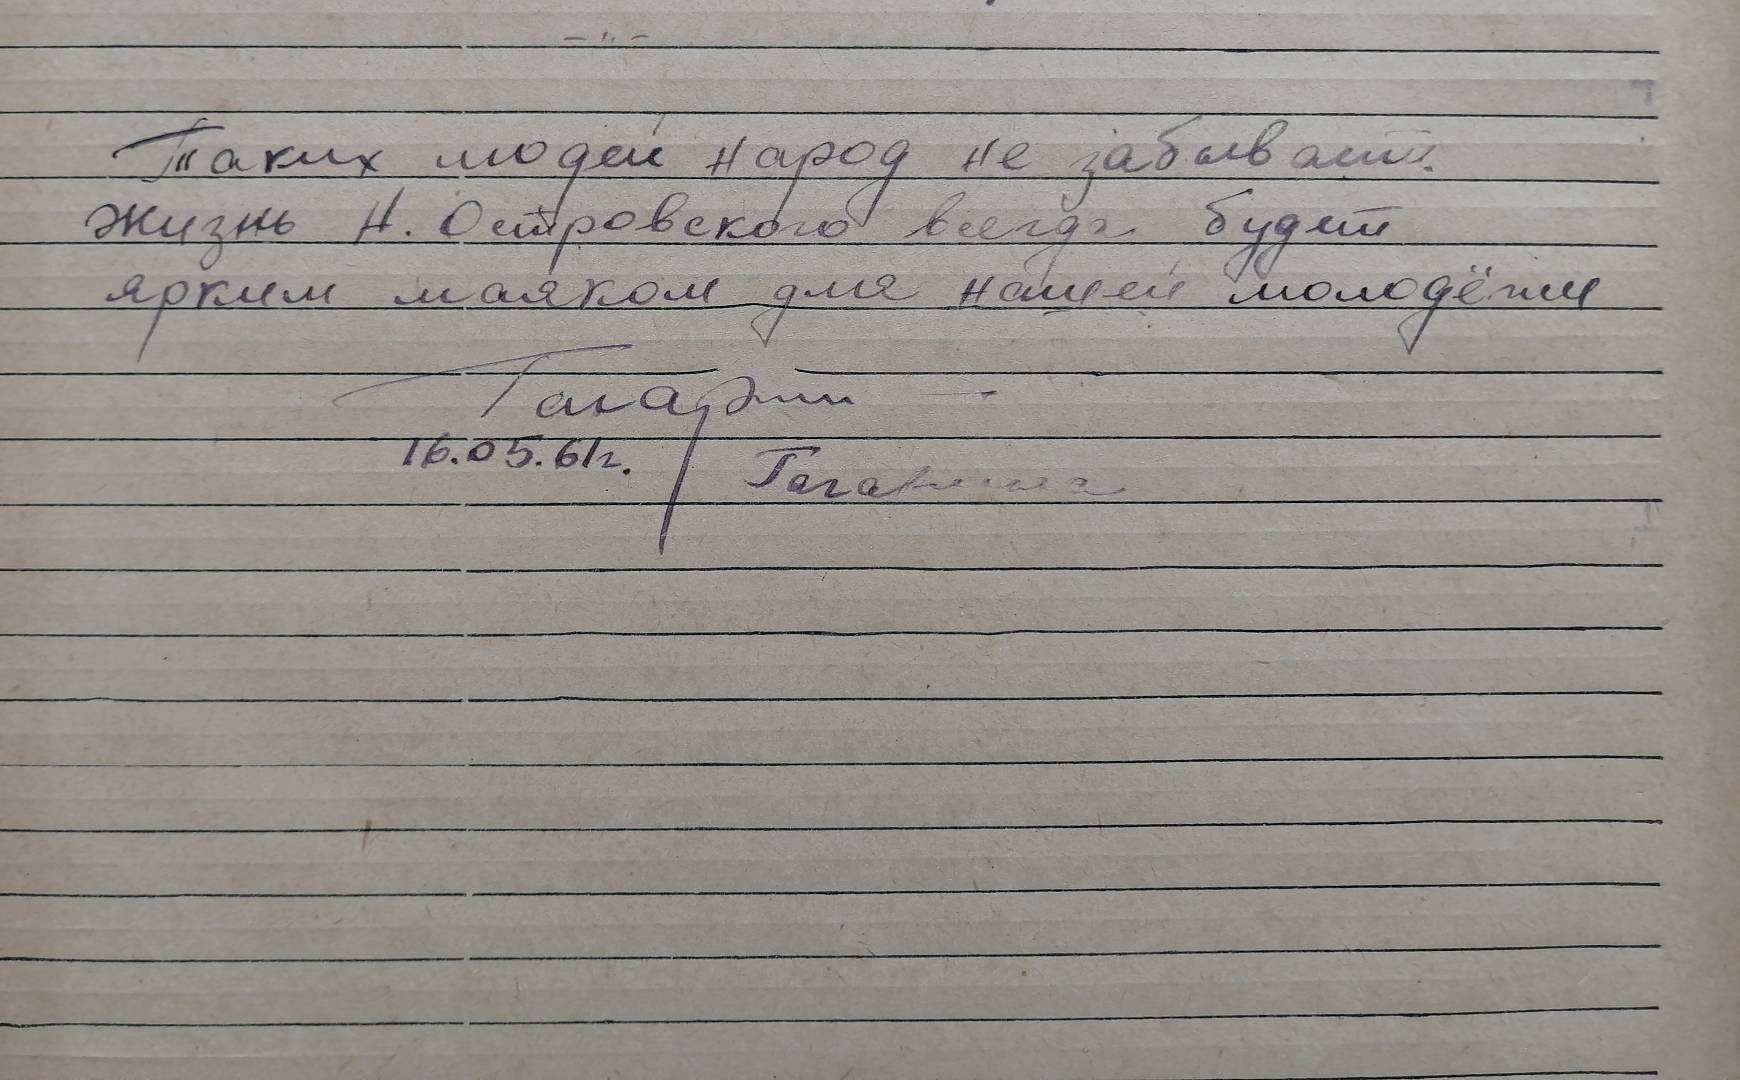 Таких людей народ не забывает.
Жизнь Н. Островского всегда будет
ярким маяком для нашей молодёжи
Гагарин
16.05.61г.
Гагарина